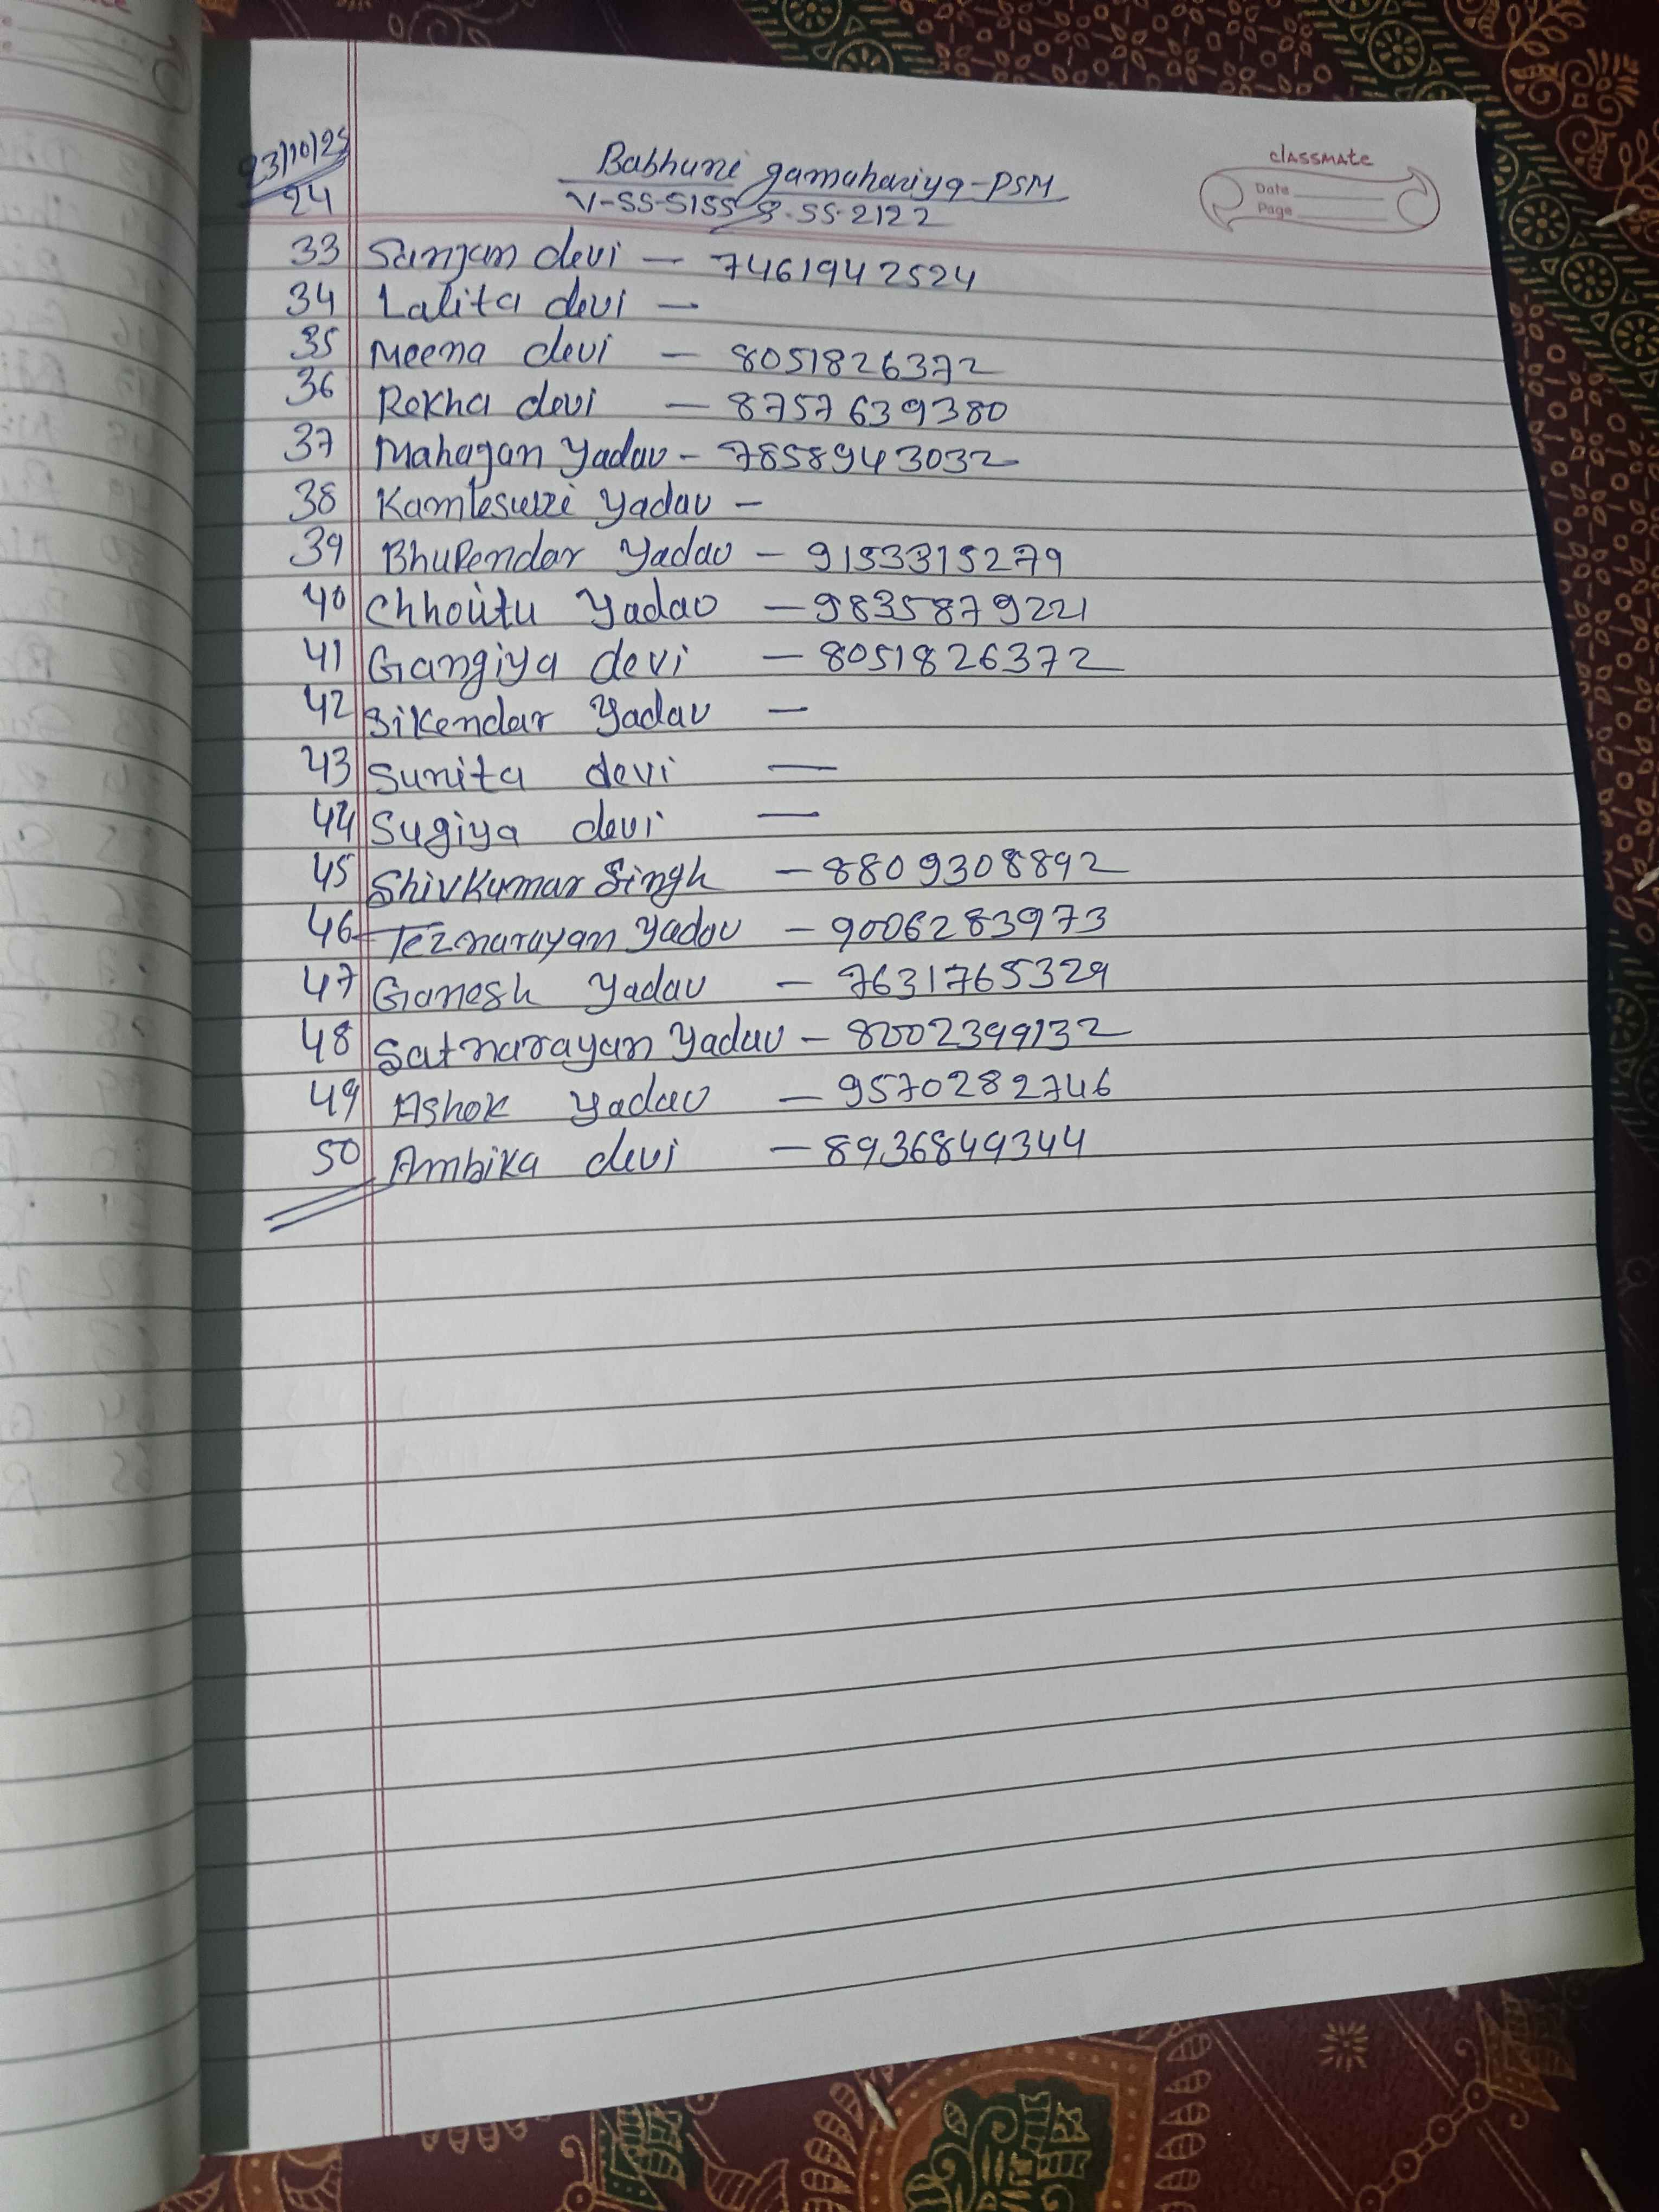 23/10/25
24
Babhuni gamahariya-PSM
V-SS-5155 S.SS-2122
classmate
Date
Page
33 Sanjan devi — 7461942524
34 Lalita devi —
35 Meena devi — 8051826372
36 Rekha devi — 8757639380
37 Mahagan Yadav - 7858943032
38 Kamleswri Yadav -
39 BhuPendar Yadav - 9153315279
40 Chhoutu Yadav - 9835879221
41 Gangiya devi - 8051826372
42 Sikendar Yadav -
43 Sunita devi —
44 Sugiya devi —
45 ShivKumar Singh - 8809308892
46 Teznarayan Yadav - 9006283973
47 Ganesh Yadav - 7631765329
48 Satnarayan Yadav - 8002399132
49 Ashok Yadav - 9570282746
50 Ambika devi - 8936849344